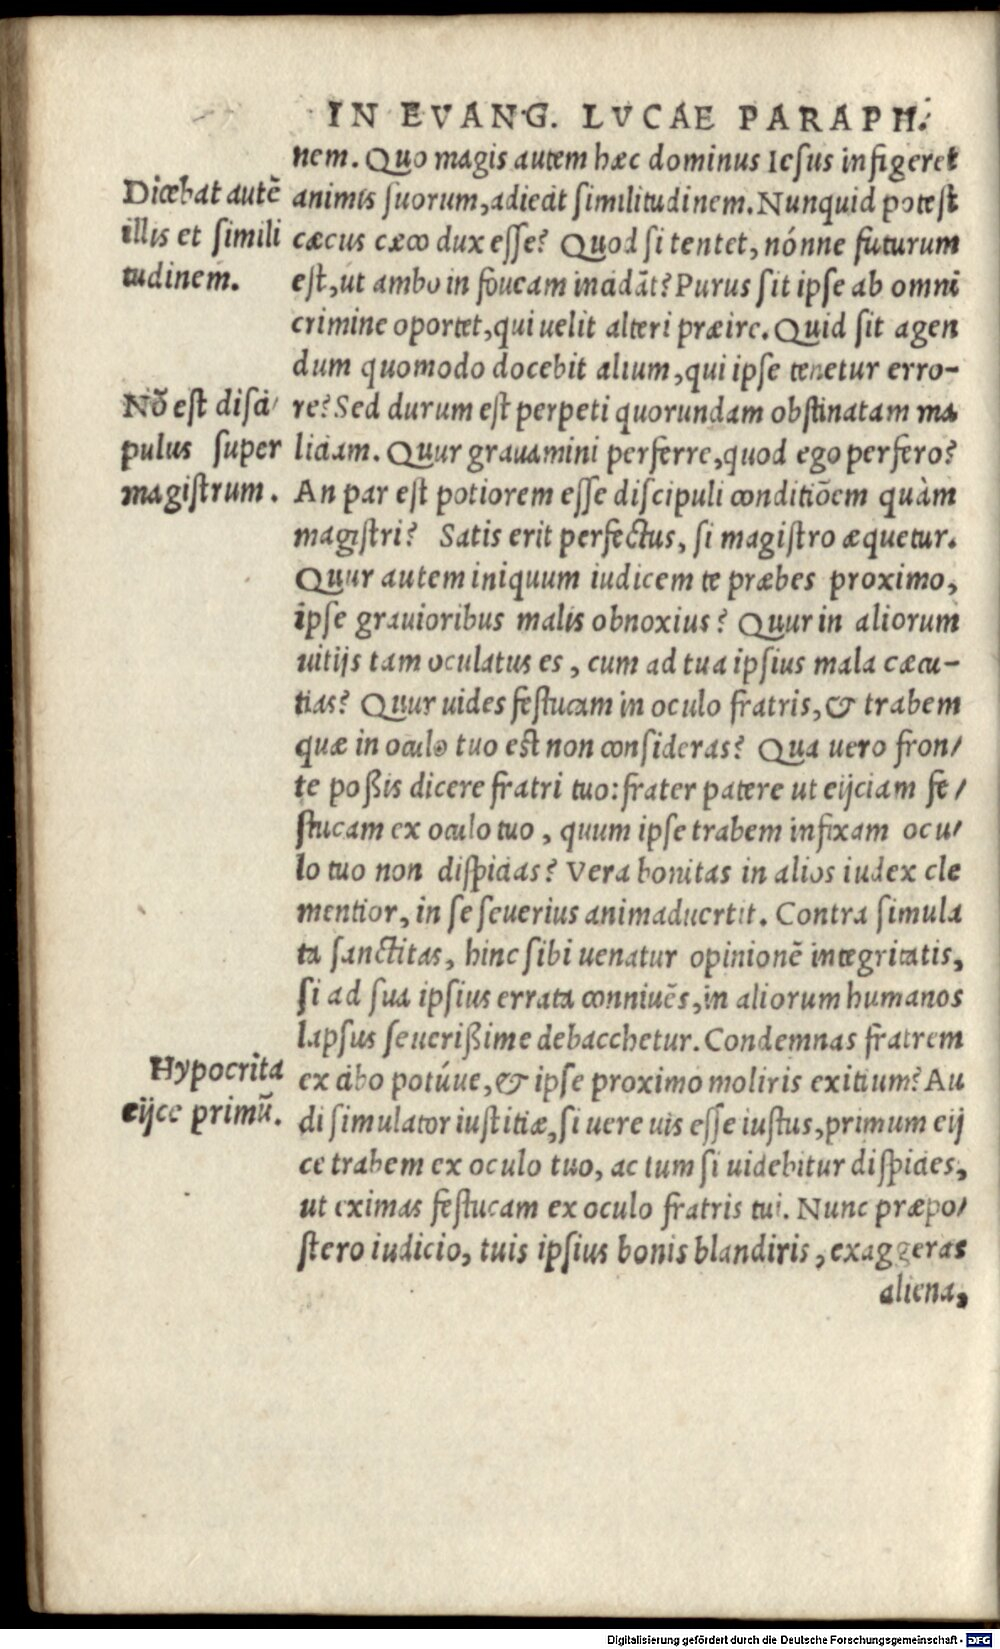 IN EVANG. LVCAE PARAPH.
nem. Quo magis autem hæc dominus Iesus infigeret
animis suorum, adiecit similitudinem. Nunquid potest
cæcus cæco dux esse? Quod si tentet, nónne futurum
est, ut ambo in foueam incidāt? Purus sit ipse ab omni
crimine oportet, qui uelit alteri præire. Quid sit agen
dum quomodo docebit alium, qui ipse tenetur erro-
re? Sed durum est perpeti quorundam obstinatam ma
liciam. Quur grauamini perferre, quod ego perfero?
An par est potiorem esse discipuli conditiōem quàm
magistri? Satis erit perfectus, si magistro æquetur.
Quur autem iniquum iudicem te præbes proximo,
ipse grauioribus malis obnoxius? Quur in aliorum
uitijs tam oculatus es, cum ad tua ipsius mala cæcu-
tias? Quur uides festucam in oculo fratris, & trabem
quæ in oculo tuo est non consideras? Qua uero fron/
te poßis dicere fratri tuo: frater patere ut eijciam fe/
stucam ex oculo tuo, quum ipse trabem infixam ocu/
lo tuo non dispicias? Vera bonitas in alios iudex cle
mentior, in se seuerius animaduertit. Contra simula
ta sanctitas, hinc sibi uenatur opinionē integritatis,
si ad sua ipsius errata conniuēs, in aliorum humanos
lapsus seuerißime debacchetur. Condemnas fratrem
ex cibo potúue, & ipse proximo moliris exitium? Au
di simulator iustitiæ, si uere uis esse iustus, primum eij
ce trabem ex oculo tuo, ac tum si uidebitur dispicies,
ut eximas festucam ex oculo fratris tui. Nunc præpo/
stero iudicio, tuis ipsius bonis blandiris, exaggeras
aliena,
Dicebat autē
illis et simili
tudinem.
Nō est disci/
pulus super
magistrum.
Hypocrita
eijce primū.
Digitalisierung gefördert durch die Deutsche Forschungsgemeinschaft - DFG